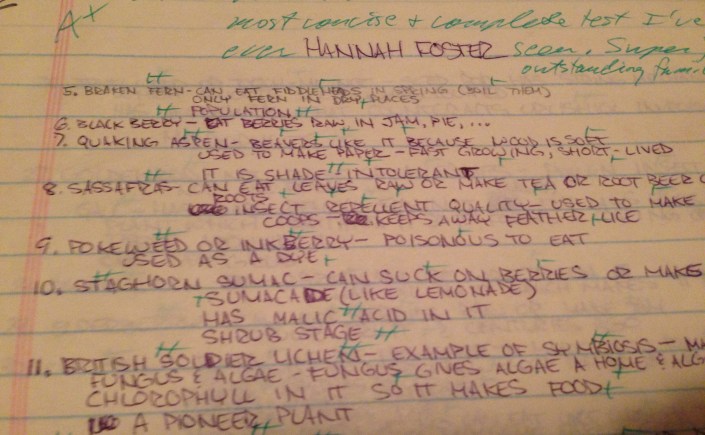 A+ most concise + complete test I've
ever HANNAH FOSTER seen. Super,
outstanding
5. BRAKEN FERN - CAN EAT FIDDLEHEADS IN SPRING (BOIL THEM)
ONLY FERN IN DRY PLACES
POPULATION
6. BLACK BERRY - EAT BERRIES RAW, IN JAM, PIE, ...
7. QUAKING ASPEN - BEAVERS LIKE IT BECAUSE WOOD IS SOFT
USED TO MAKE PAPER - FAST GROWING, SHORT-LIVED
IT IS SHADE INTOLERANT
8. SASSAFRAS - CAN EAT LEAVES RAW OR MAKE TEA OR ROOT BEER
ROOTS
INSECT REPELLENT QUALITY - USED TO MAKE
COOPS - KEEPS AWAY FEATHER LICE
9. POKEWEED OR INKBERRY - POISONOUS TO EAT
USED AS A DYE
10. STAGHORN SUMAC - CAN SUCK ON BERRIES OR MAKE
SUMACADE (LIKE LEMONADE)
HAS MALIC ACID IN IT
SHRUB STAGE
11. BRITISH SOLDIER LICHEN - EXAMPLE OF SYMBIOSIS -
FUNGUS & ALGAE - FUNGUS GIVES ALGAE A HOME & ALG
CHLOROPHYLL IN IT SO IT MAKES FOOD
A PIONEER PLANT